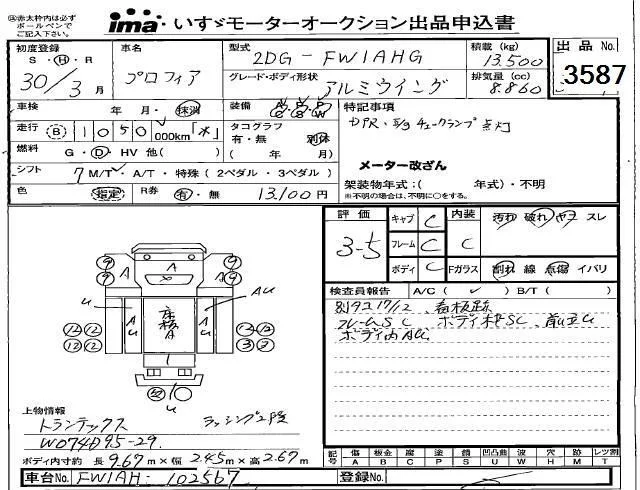 ⓐ赤太枠内は必ず
ボールペンで
ご記入下さい。
ima いすゞモーターオークション出品申込書
初度登録
S・H・R
30/3月
車名
プロフィア
型式
2DG-FW1AHG
積載 (kg)
13.500
出品 No.
3587
グレード・ボディ形状
アルミウイング
排気量 (cc)
8.860
車検 年・月・抹消
装備 A/C P/S P/W
特記事項
DPR・E/g チェックランプ点灯
走行 B 1050,000km「K」
タコグラフ
有・無 別体
( 年 月)
燃料 G・D・HV 他( )
メーター改ざん
シフト 7 M/T・A/T・特殊(2ペダル・3ペダル)
架装物年式:( 年式)・不明
※不明の場合は、不明に○をする。
色 (指定) R券 有・無 13.100円
評価
3-5
キャブ C
フレーム C
ボディ C
内装 C
Fガラス S
汚れ 破れ ヤコ スレ
割れ 線 点傷 イパリ
検査員報告 A/C( ✓ ) B/T( )
別タコ17/12、看板跡
フレームSC ボディ枠SC、前U左U
ボディ内AU
9 9 A A A 9 9
U AU
A U 床板 A A U
12 12 12 12
12 12 3 3
U
上物情報
トランテックス ラッシング2段
W074D95-29.
ボディ内寸約 長 9.67m×幅 2.45m×高 2.67m
記号 傷 A 板金 B 腐 C 塗 P 錆 S 凹凸曲 U 波 W 穴 H 跡 M レツ割 T
車台No. FW1AH-102567
登録No.